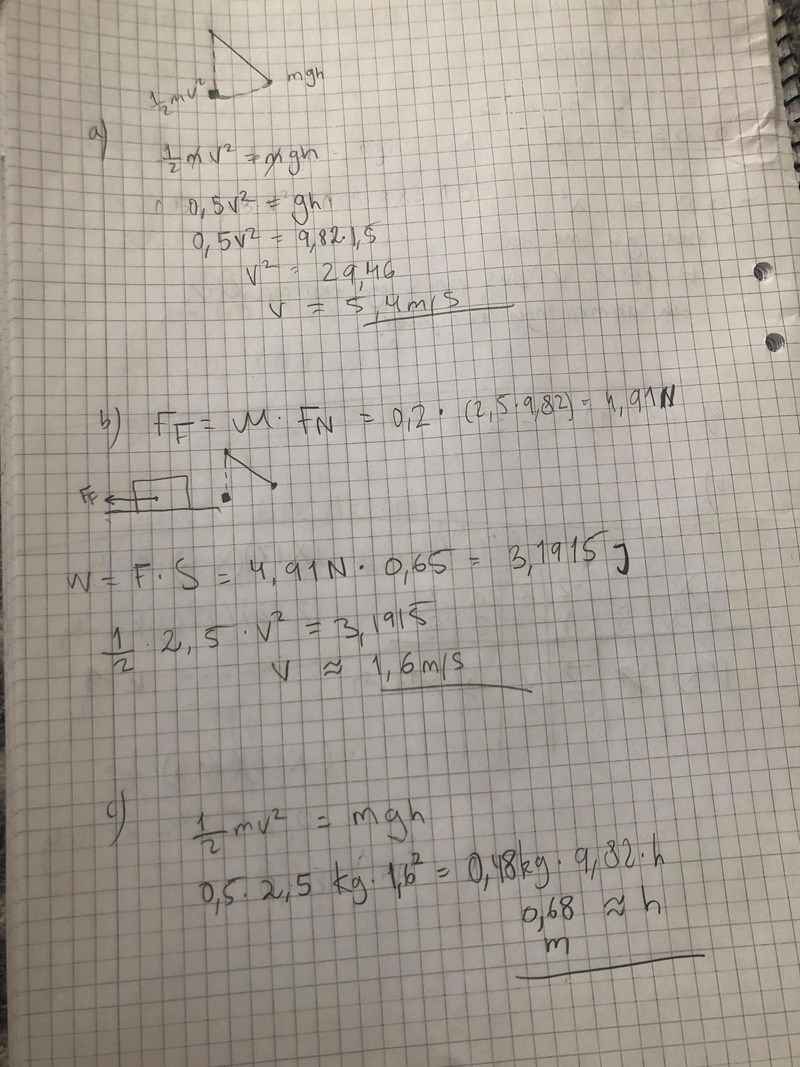 ½mv² mgh
a)
½mv² = mgh
0,5v² = gh
0,5v² = 9,82·1,5
v² = 29,46
v = 5,4m/s
b) FF = M · FN = 0,2 · (2,5·9,82) = 4,91N
FF
W = F·S = 4,91N · 0,65 = 3,1915J
½ · 2,5 · v² = 3,1915
v ≈ 1,6m/s
c)
½mv² = mgh
0,5 · 2,5 kg · 1,6² = 0,48kg · 9,82 · h
0,68 ≈ h
m